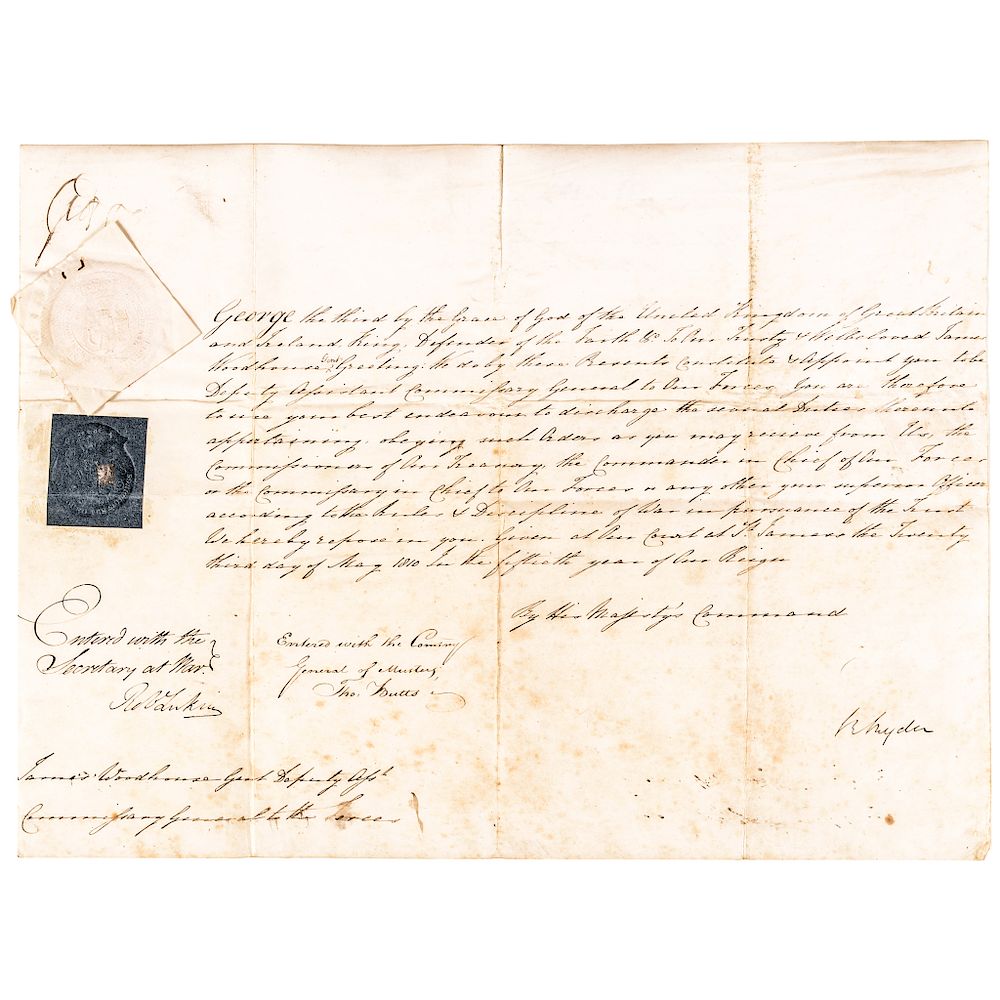 George the third by the Grace of God of the United Kingdom of Great Britain
and Ireland, King, Defender of the Faith &c To Our Trusty & Wellbeloved James
Woodhouse Gent. Greeting. We do by these Presents Constitute & Appoint you to be
Deputy Assistant Commissary General to Our Forces, You are therefore
to use your best endeavour to discharge the several Duties thereunto
appertaining, obeying such Orders as you may recieve from Us, the
Commissioners of Our Treasury, the Commander in Chief of Our Forces
or the Commissary in Chief to Our Forces or any other your superior Officer
according to the Rules & Discipline of War in pursuance of the Trust
We hereby repose in you. Given at Our Court at St. James's the Twenty
third day of May 1810 In the fiftieth year of Our Reign
By His Majesty's Command
Entered with the
Secretary at War.
Entered with the Comiry
General of Musters,
Tho. Butts
R Ryder
James Woodhouse Gent Deputy Asst
Commissary General to the Forces